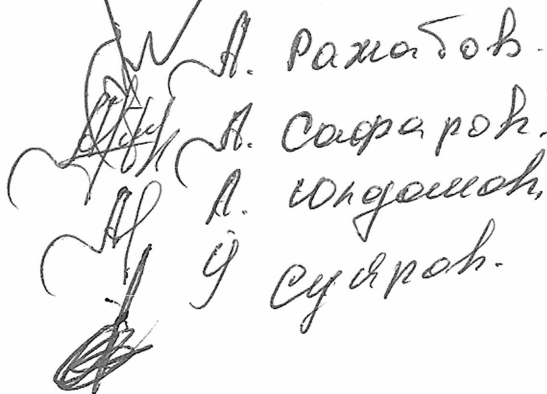 А. Ражабов.
А. Сафаров.
А. Юлдашов.
Й Суяров.